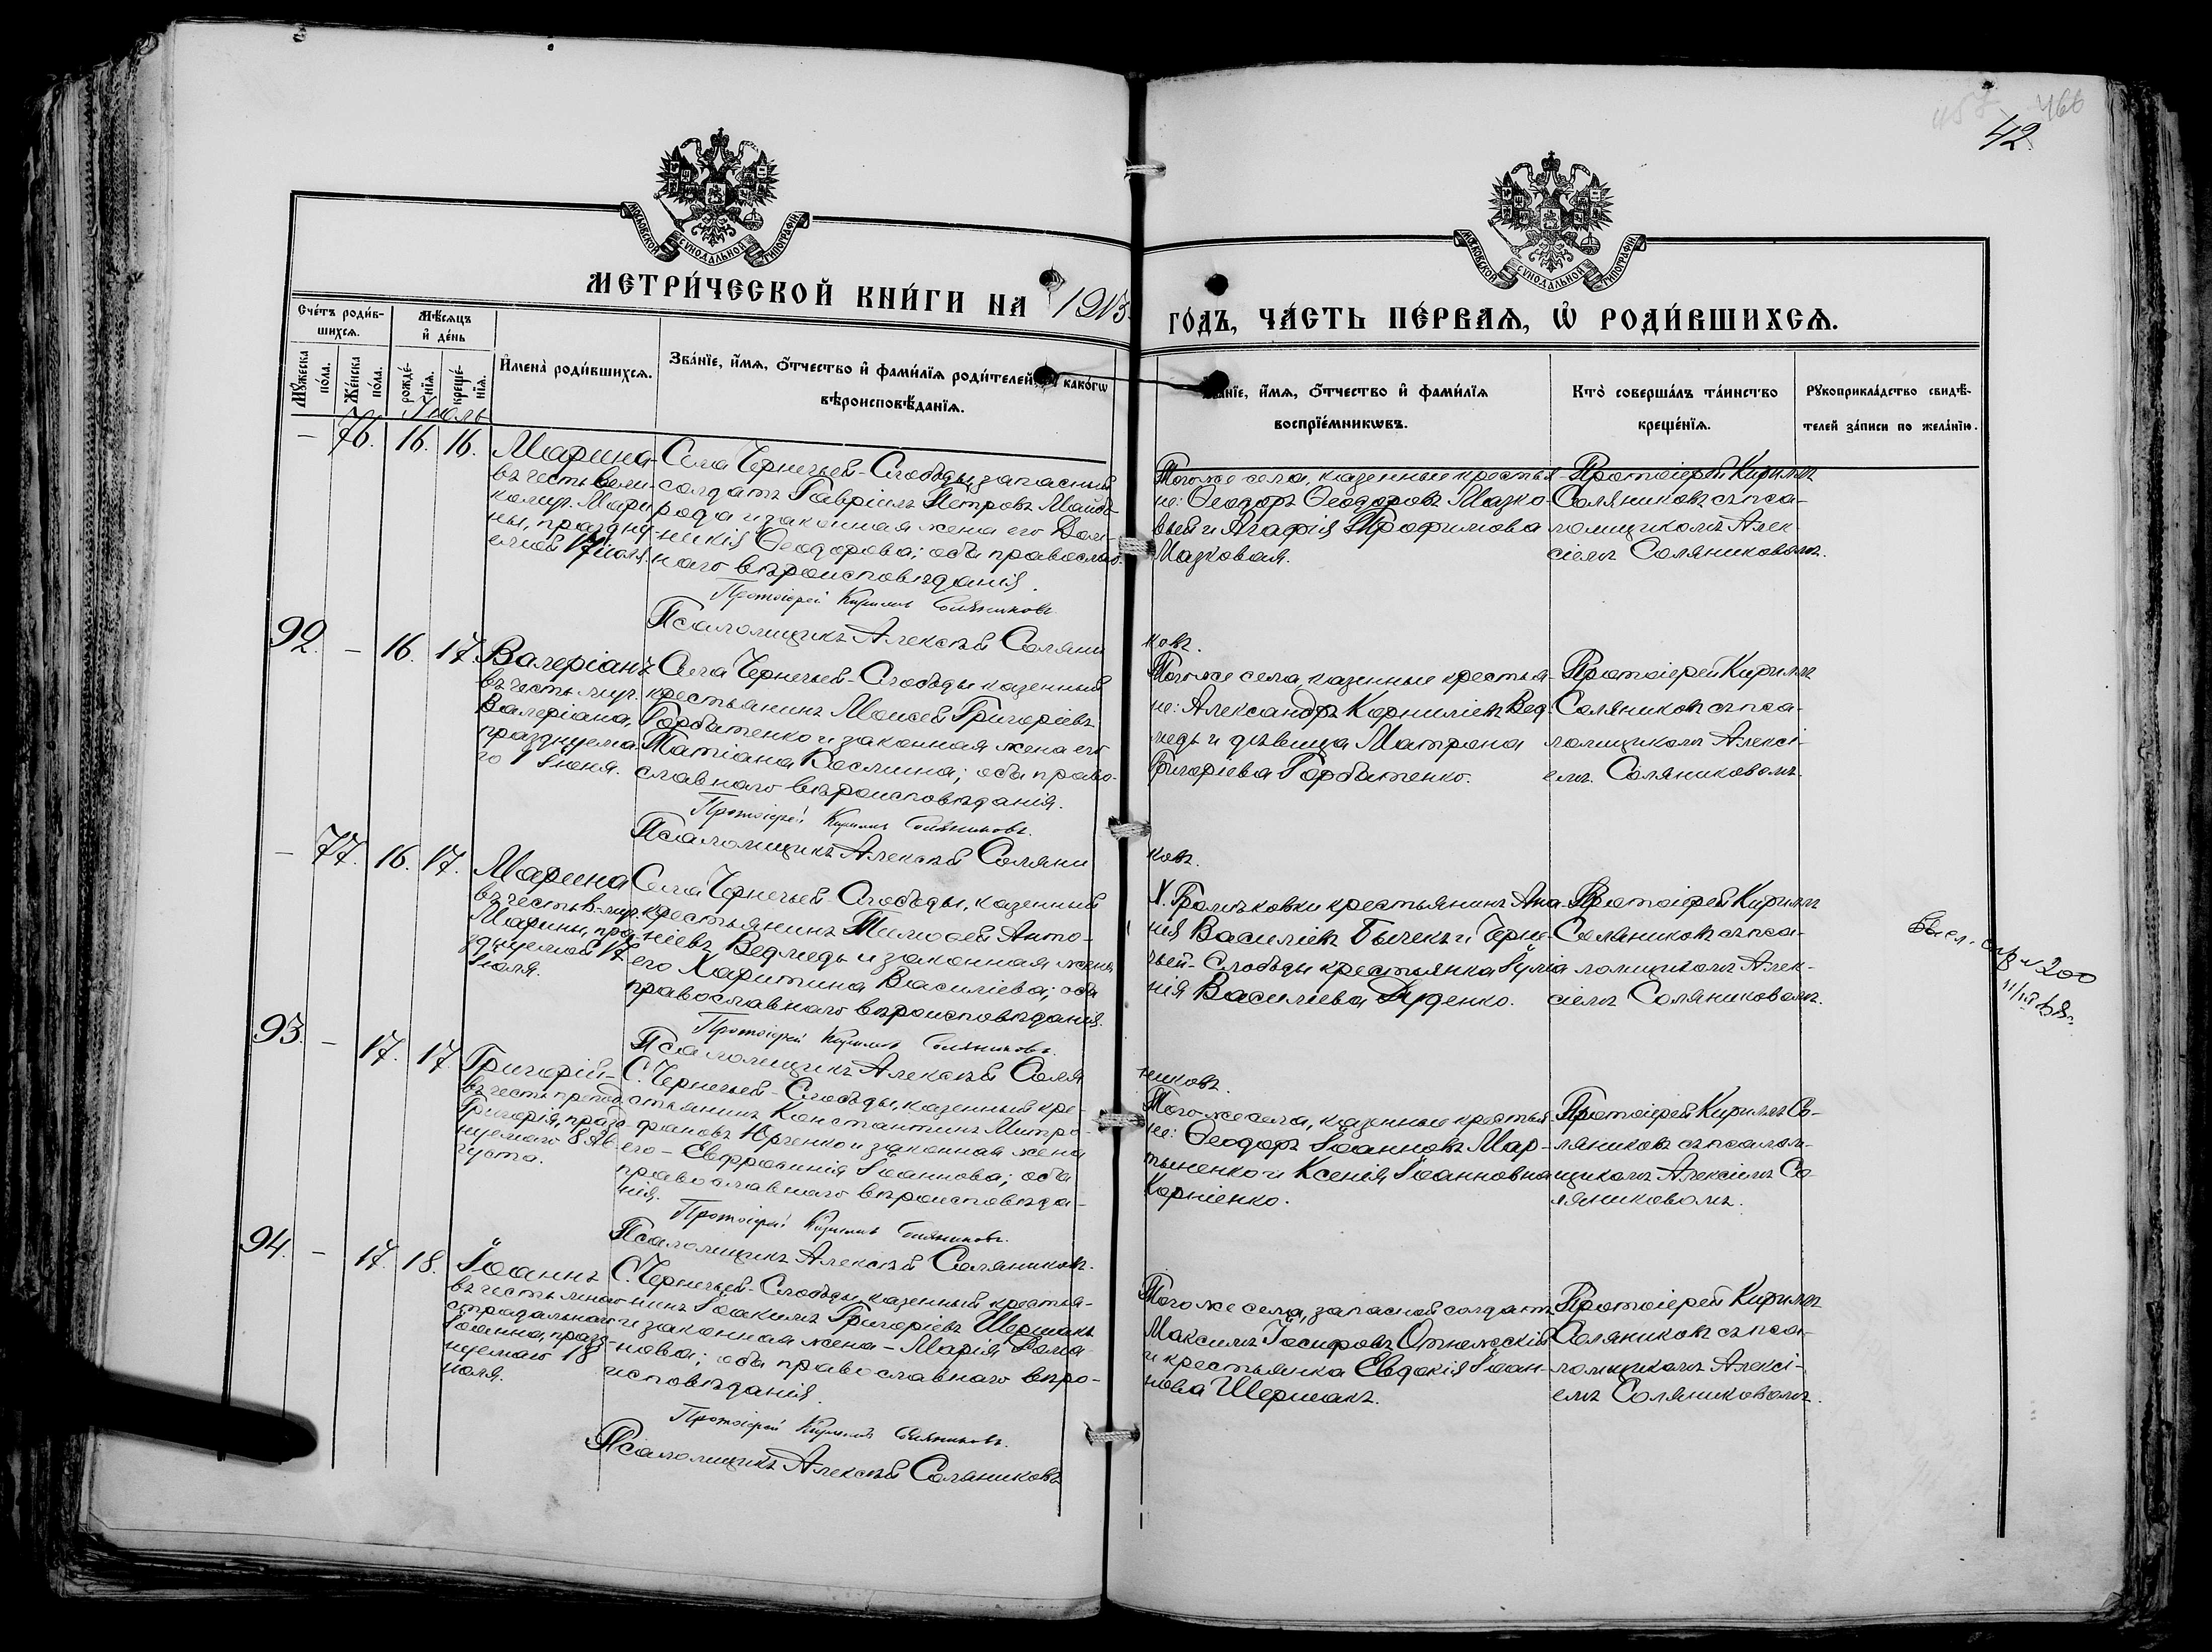 42
466
МОСКОВСКОЙ СѴНОДАЛЬНОЙ ТИПОГРАФІИ
МОСКОВСКОЙ СѴНОДАЛЬНОЙ ТИПОГРАФІИ
МЕТРИ́ЧЕСКОЙ КНИ́ГИ НА 1913
ГО́ДЪ, ЧА́СТЬ ПЕ́РВАѦ, Ѡ҆ РОДИ́ВШИХСѦ.
Сче́тъ роди́в-
шихсѧ.
Мѣ́сѧцъ
и҆ де́нь
Мꙋ́жеска
по́ла.
Же́нска
по́ла.
рожде́-
нїѧ.
креще́-
нїѧ.
И҆мена̀ роди́вшихсѧ.
Зва́нїе, и҆́мѧ, ѻ҆́тчество и҆ фами́лїѧ роди́телей, како́гѡ
вѣроисповѣ́данїѧ.
и҆́мѧ, ѻ҆́тчество и҆ фами́лїѧ
воспрїе́мникѡвъ.
Кто̀ соверша́лъ та́инство
креще́нїѧ.
Рꙋкоприкла́дство свидѣ́-
телей за́писи по жела́нїю.
Іюль
— 76. 16. 16.
Марина
въ честь вели-
комуч. Мари
ны, праздну-
емой 17 іюля.
Села Чернечьей-Слободы, запасный
солдатъ Гавріилъ Петровъ Майбо-
рода и законная жена его Дом-
никія Ѳеодорова; оба православ-
наго вѣроисповѣданія.
Протоіерей Кириллъ Соляниковъ.
Псаломщикъ Алексѣй Соляни
ковъ.
Того же села, казенные крестья-
не: Ѳеодоръ Ѳеодоровъ Мазко-
вый и Агафія Трофимова
Мазковая.
Протоіерей Кириллъ
Соляниковъ съ пса-
ломщикомъ Алек
сіемъ Соляниковымъ.
92. — 16. 17.
Валеріанъ
въ честь муч.
Валеріана,
празднуема
го 1 Іюня.
Села Чернечьей-Слободы казенный
крестьянинъ Моисей Григоріевъ
Горбатенко и законная жена его
Татіана Космина; оба право-
славнаго вѣроисповѣданія.
Протоіерей Кириллъ Соляниковъ.
Псаломщикъ Алексѣй Соляни
ковъ.
Того же села, казенные крестья-
не: Александръ Корниліевъ Вед-
медь и дѣвица Матрона
Григоріева Горбатенко.
Протоіерей Кириллъ
Соляниковъ съ пса-
ломщикомъ Алексі-
емъ Соляниковымъ.
— 77. 16. 17.
Марина
въ честь в-муч.
Марины, пра-
зднуемой 17
Іюля.
Села Чернечьей-Слободы, казенный
крестьянинъ Тимоѳей Анто-
ніевъ Ведмедь и законная жена
его Харитина Василіева; оба
православнаго вѣроисповѣданія.
Протоіерей Кириллъ Соляниковъ.
Псаломщикъ Алексѣй Соля
никовъ.
Х. крестьянинъ Ана-
нія Василіевъ Бычекъ и Черне-
чьей-Слободы крестьянка
Василіева Дуденко.
Протоіерей Кириллъ
Соляниковъ съ пса-
ломщикомъ Алек-
сіемъ Соляниковымъ.
200
93. — 17. 17.
Григорій
въ честь препод.
Григорія, празд-
нуемаго 8 Ав-
густа.
С. Чернечьей-Слободы, казенный кре-
стьянинъ Константинъ Митро-
фановъ Юрченко и законная жена
его — Евфросинія Іоаннова; оба
православнаго вѣроисповѣда-
нія.
Протоіерей Кириллъ Соляниковъ.
Псаломщикъ Алексѣй Соляниковъ.
Того же села, казенные крестья-
не: Ѳеодоръ Іоанновъ Мар-
тыненко и Ксенія Іоанновна
Корніенко.
Протоіерей Кириллъ Со-
ляниковъ съ псалом-
щикомъ Алексіемъ Со
ляниковымъ.
94. — 17. 18.
Іоаннъ
въ честь много
страдальнаго
Іоанна, празд-
нуемаго 18
іюля.
С. Чернечьей-Слободы, казенный крестья-
нинъ Іоакимъ Григоріевъ Шермакъ
и законная жена — Марія Рома-
нова; оба православнаго вѣро-
исповѣданія.
Протоіерей Кириллъ Соляниковъ.
Псаломщикъ Алексѣй Соляниковъ
Того же села, запасной солдатъ
Максимъ Іосифовъ
и крестьянка Евдокія Іоан-
нова Шермакъ.
Протоіерей Кириллъ
Соляниковъ съ пса-
ломщикомъ Алексі-
емъ Соляниковымъ.